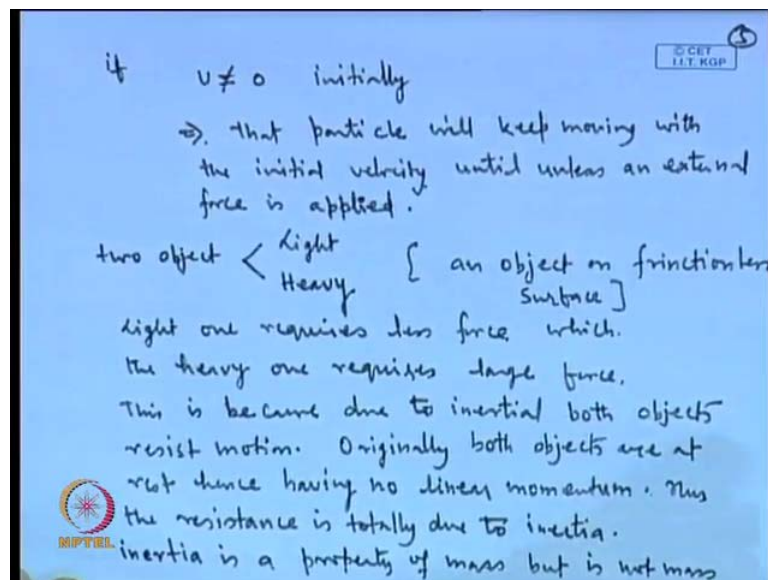 5
© CET
I.I.T. KGP
if U ≠ 0 initially
⇒. that particle will keep moving with
the initial velocity untid unless an external
force is applied.
two object < Light { an object on frinctionless
Heavy Surface ]
Light one requires less force which.
the heavy one requires large force.
This is because due to inertial both objects
resist motion. Originally both objects are at
rest hence having no linear momentum. Thus
the resistance is totally due to inertia.
NPTEL
inertia is a property of mass but is not mass